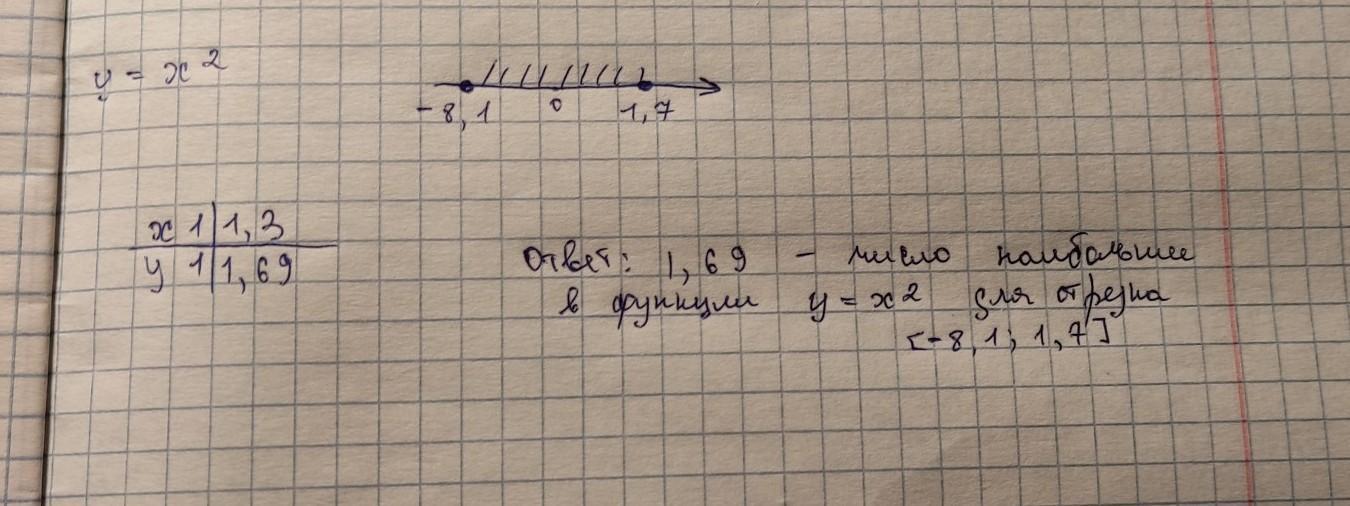 y = x²
-8,1 0 1,7
x 1 1,3
y 1 1,69
Ответ: 1,69 - число наибольшее
в функции y = x² для отрезка
[-8,1; 1,7]